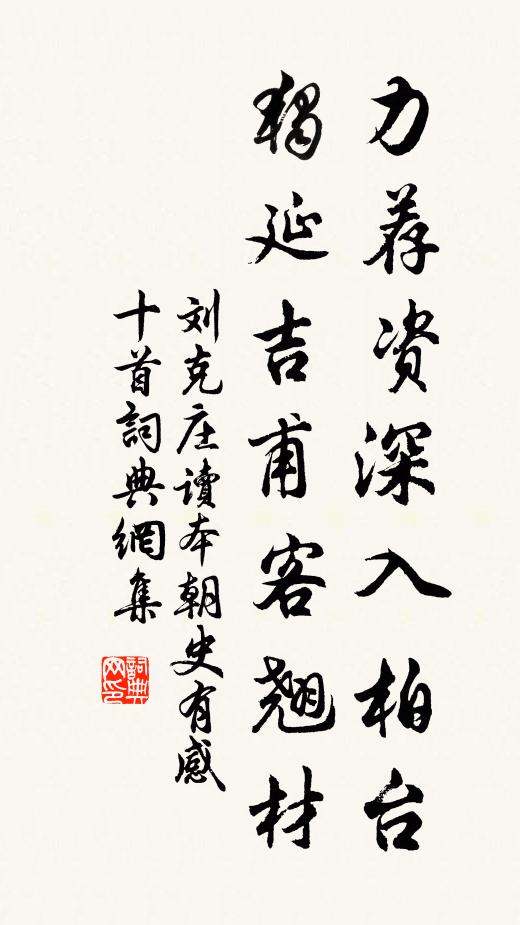 力荐资深入柏台
独延吉甫客翘材
刘克庄讀本朝史有感
十首詞典網集
詞典网印